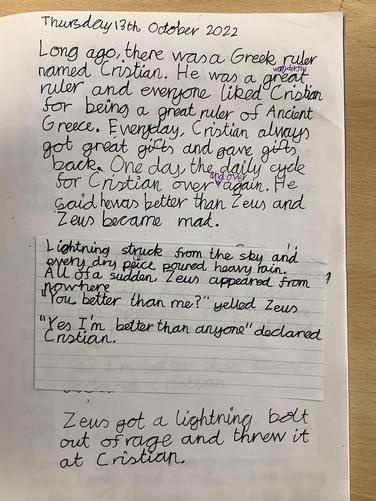 Thursday 13th October 2022
Long ago, there was a Greek ruler
named Cristian. He was a great
ruler and everyone liked Cristian
for being a great ruler of Ancient
Greece. Everyday, Cristian always
got great gifts and gave gifts
back. One day the daily cycle
and over
for Cristian over again. He
said he was better than Zeus and
Zeus became mad.
Lightning struck from the sky and
every dry peice poured heavy rain.
All of a sudden, Zeus appeared from
nowhere
"You better than me?" yelled Zeus
"Yes I'm better than anyone" declared
Cristian.
Zeus got a lightning bolt
out of rage and threw it
at Cristian.